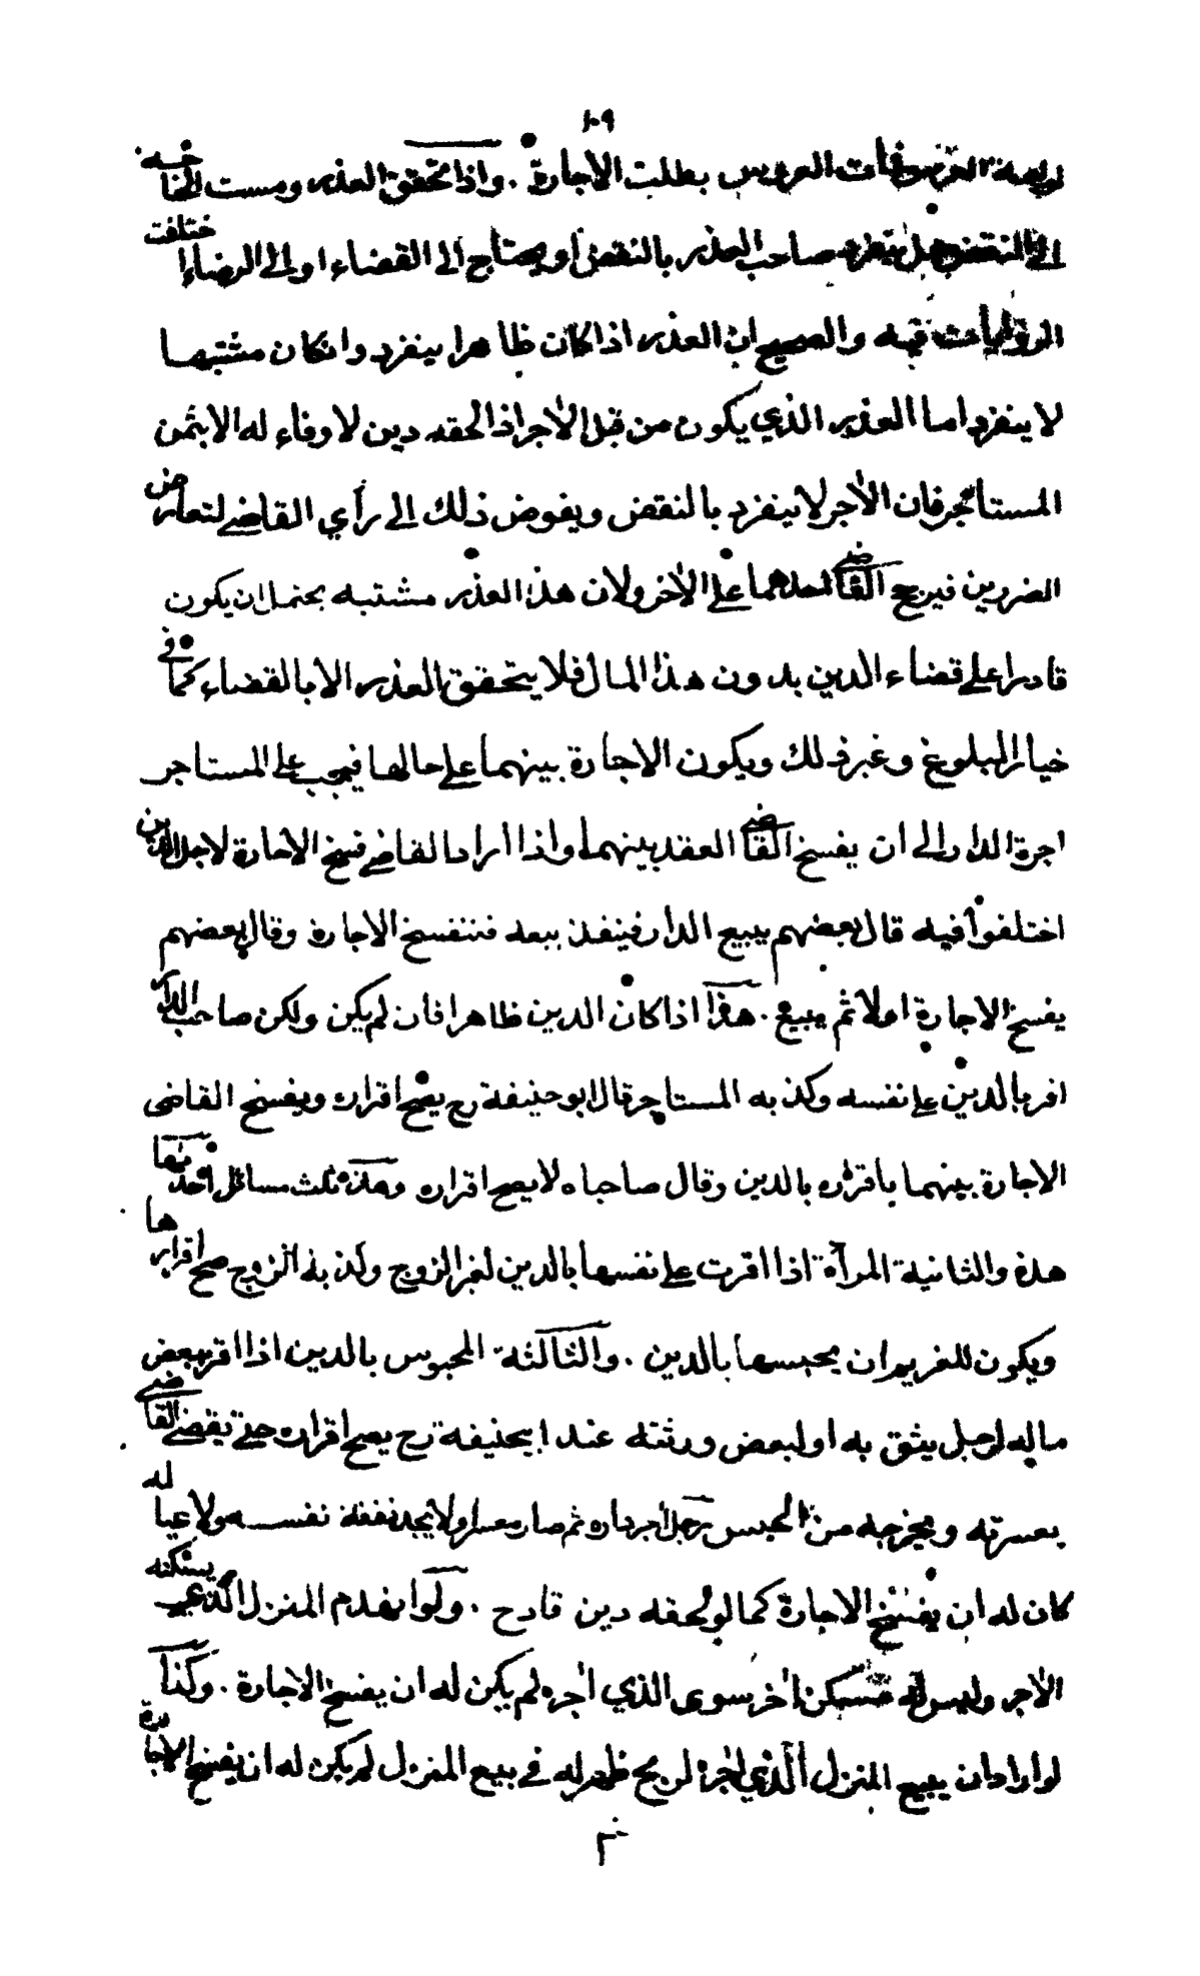 ١٠٩
لوليمة العرس فماتت العروس بطلت الاجارة . واذا تحقق العذر ومست الحاجة
الى النقض هل يتفرد صاحب العذر بالنقض او يحتاج الى القضاء او الى الرضاء اختلفت
الروايات فيه والصحيح ان العذر اذا كان ظاهرا ينفرد وان كان مشتبها
لا ينفرد اما العذر الذي يكون من قبل الآجر اذا لحقه دين لا وفاء له الا بثمن
المستأجر فان الآجر لا ينفرد بالنقض ويفوض ذلك الى رأي القاضي لتعارض
الضررين فيرجح القاضي احدهما على الآخر ولان هذا العذر مشتبه يحتمل ان يكون
قادرا على قضاء الدين بدون هذا المال فلا يتحقق العذر الا بالقضاء كما في
خيار البلوغ وغير ذلك ويكون الاجارة بينهما على حالها فيجب على المستاجر
اجرة الدار الى ان يفسخ القاضي العقد بينهما واذا اراد القاضي فسخ الاجارة لاجل الدين
اختلفوا فيه قال بعضهم يبيع الدار فينفذ بيعه فتنفسخ الاجارة وقال بعضهم
يفسخ الاجارة اولا ثم يبيع . هذا اذا كان الدين ظاهرا فان لم يكن ولكن صاحب الدار
اقر بالدين على نفسه وكذبه المستاجر قال ابو حنيفة رح يصح اقراره ويفسخ القاضي
الاجارة بينهما باقراره بالدين وقال صاحباه لا يصح اقراره وهذه ثلث مسائل احدها
هذه والثانية المرأة اذا اقرت على نفسها بالدين لغير الزوج وكذبه الزوج صح اقرارها
ويكون للغريم ان يحبسها بالدين . والثالثة المحبوس بالدين اذا اقر ببعض
ماله لرجل يثق به او لبعض ورثته عند ابي حنيفة رح يصح اقراره حتى يقضي القاضي
بعسرته ويخرجه من الحبس رجل اجر داره ثم صار معسرا ولا يجد نفقة نفسه ولا عياله
كان له ان يفسخ الاجارة كما لو لحقه دين قادح . ولو انهدم المنزل الذي يسكنه
الآجر وليس له مسكن آخر سوى الذي آجره لم يكن له ان يفسخ الاجارة . وكذا
لو اراد ان يبيع المنزل الذي اجره لربح ظهر له في بيع المنزل لم يكن له ان يفسخ الاجارة